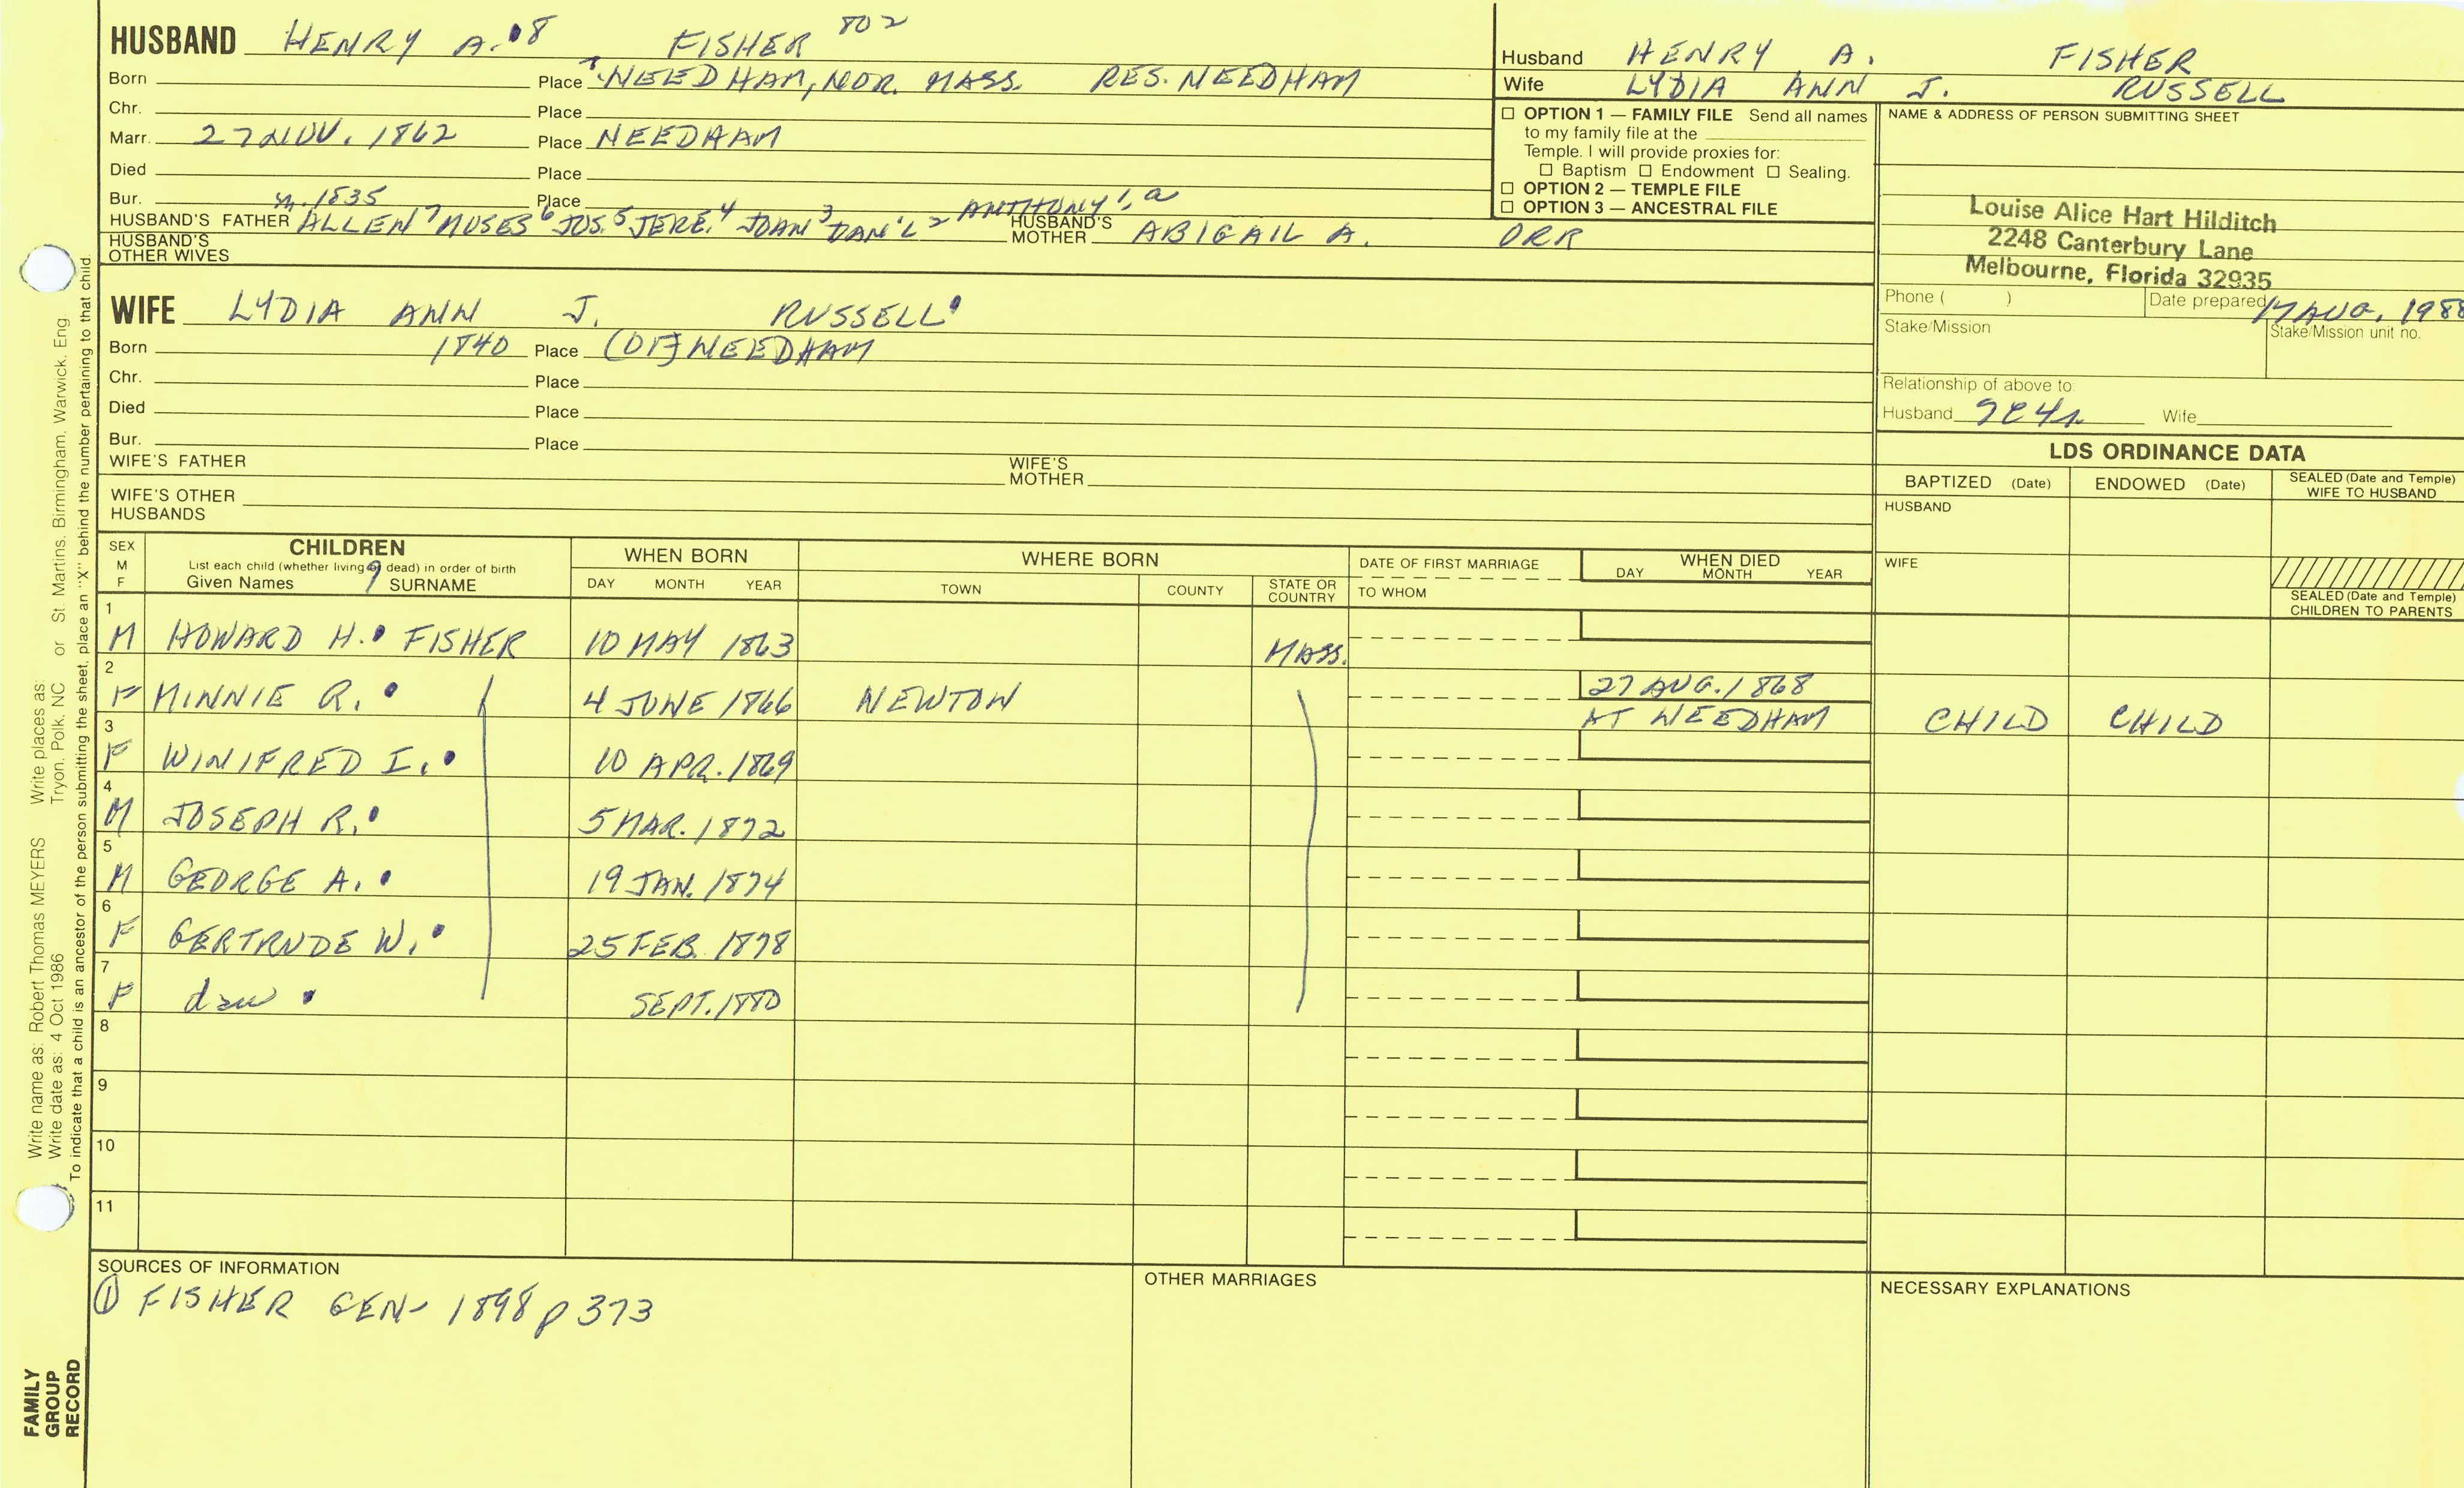 HUSBAND HENRY A. 8 FISHER 802
Born Place NEEDHAM, NOR. MASS. RES. NEEDHAM
Chr. Place
Marr. 27 NOV. 1862 Place NEEDHAM
Died Place
Bur. m. 1835 Place
HUSBAND'S FATHER ALLEN 7 MOSES 6 JOS. 5 JERE. 4 JOHN 3 DAN'L 2 ANTHONY 1, a HUSBAND'S MOTHER ABIGAIL A. ORR
HUSBAND'S OTHER WIVES
WIFE LYDIA ANN J. RUSSELL
Born 1840 Place (OF) NEEDHAM
Chr. Place
Died Place
Bur. Place
WIFE'S FATHER WIFE'S MOTHER
WIFE'S OTHER HUSBANDS
Husband HENRY A. FISHER
Wife LYDIA ANN J. RUSSELL
☐ OPTION 1 — FAMILY FILE Send all names
to my family file at the
Temple. I will provide proxies for:
☐ Baptism ☐ Endowment ☐ Sealing.
☐ OPTION 2 — TEMPLE FILE
☐ OPTION 3 — ANCESTRAL FILE
NAME & ADDRESS OF PERSON SUBMITTING SHEET
Louise Alice Hart Hilditch
2248 Canterbury Lane
Melbourne, Florida 32935
Phone ( ) Date prepared 17 AUG. 1988
Stake/Mission Stake/Mission unit no.
Relationship of above to:
Husband Wife
LDS ORDINANCE DATA
BAPTIZED (Date) ENDOWED (Date) SEALED (Date and Temple) WIFE TO HUSBAND
HUSBAND
WIFE
SEALED (Date and Temple) CHILDREN TO PARENTS
SEX M F
CHILDREN
List each child (whether living or dead) in order of birth
Given Names SURNAME
WHEN BORN
DAY MONTH YEAR
WHERE BORN
TOWN COUNTY STATE OR COUNTRY
DATE OF FIRST MARRIAGE
TO WHOM
WHEN DIED
DAY MONTH YEAR
1 M HOWARD H. FISHER 10 MAY 1863 MASS.
2 F MINNIE R. 4 JUNE 1866 NEWTON 27 AUG. 1868
AT NEEDHAM CHILD CHILD
3 F WINIFRED I. 10 APR. 1869
4 M JOSEPH R. 5 MAR. 1872
5 M GEORGE A. 19 JAN. 1874
6 F GERTRUDE W. 25 FEB. 1878
7 F dau SEPT. 1880
8
9
10
11
SOURCES OF INFORMATION
① FISHER GEN- 1898 p 373
OTHER MARRIAGES
NECESSARY EXPLANATIONS
Write name as: Robert Thomas MEYERS Write places as:
Write date as: 4 Oct 1986 Tryon, Polk, NC or St. Martins, Birmingham, Warwick, Eng
To indicate that a child is an ancestor of the person submitting the sheet, place an "X" behind the number pertaining to that child.
FAMILY
GROUP
RECORD